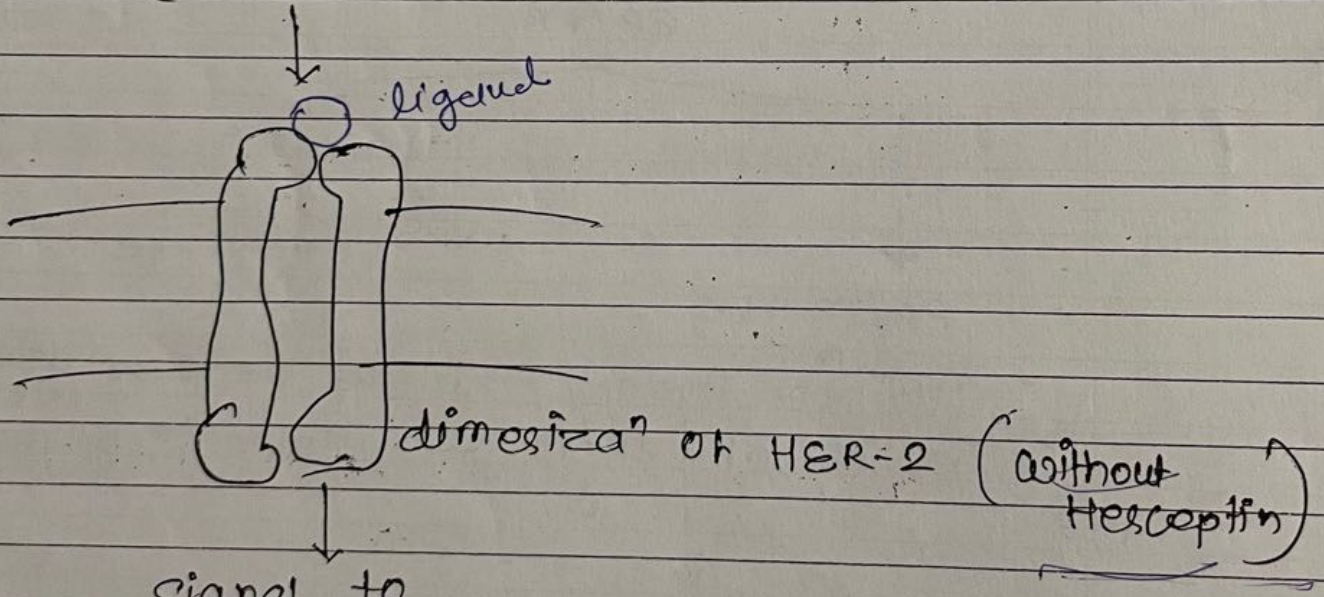 ligand
dimerizaⁿ of HER-2 (without
Herceptin)
signal to